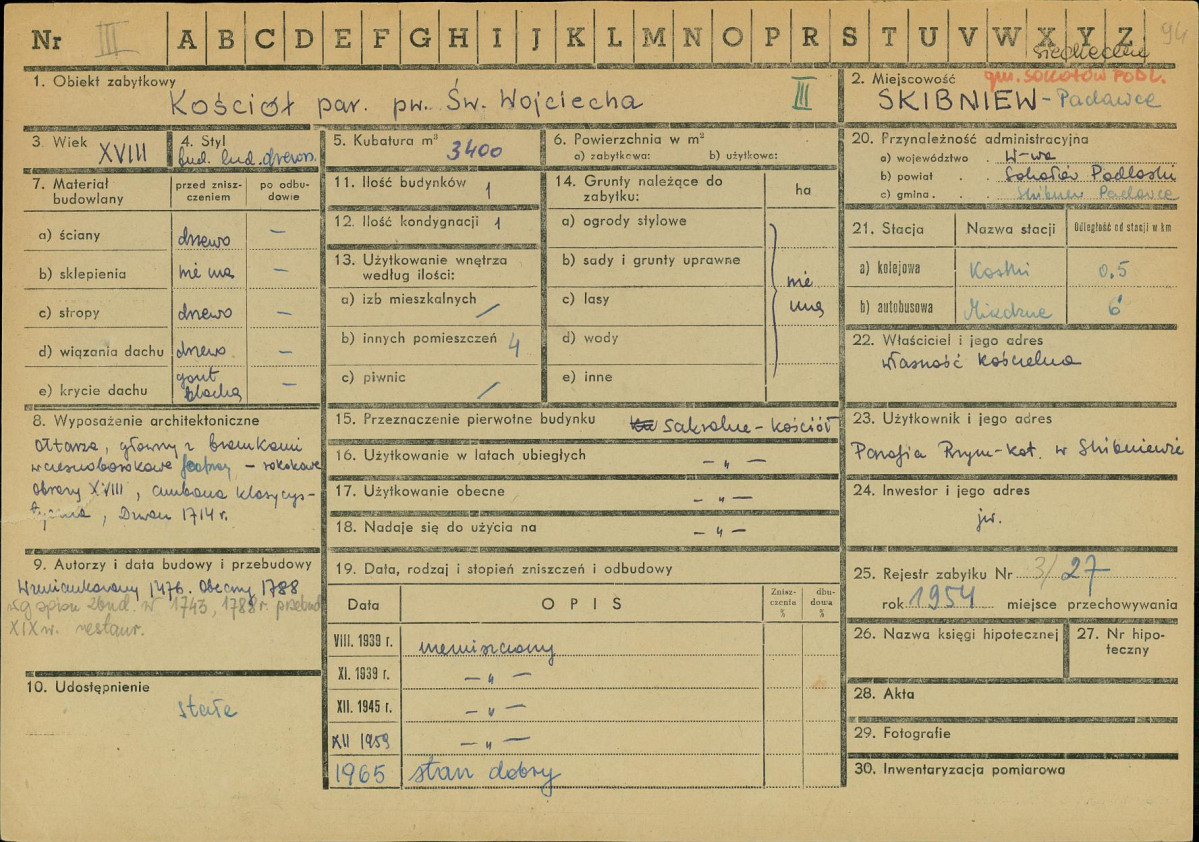 Nr III A B C D E F G H I J K L M N O P R S T U V W X Y Z 94
siedleckie
1. Obiekt zabytkowy
Kościół par. pw. Św. Wojciecha III
2. Miejscowość gm. SOKOŁÓW PODL.
SKIBNIEW-Podawce
3. Wiek XVIII
4. Styl
bud. lud. drewn.
5. Kubatura m³ 3400
6. Powierzchnia w m²
a) zabytkowa: b) użytkowa:
7. Materiał budowlany
przed zniszczeniem
po odbudowie
a) ściany drzewo —
b) sklepienia nie ma —
c) stropy drzewo —
d) wiązania dachu drzewo. —
e) krycie dachu gont blacha —
8. Wyposażenie architektoniczne
ołtarze, główny z bramkami
wczesnobarokowe – rokokowe
obrazy XVIII, ambona klasycys-
tyczna, Dzwon 1714 r.
9. Autorzy i data budowy i przebudowy
Wzmiankowany 1476. Obecny 1788
wg spisu zbud. w 1743, 1788 r. przebud
XIX w. restaur.
10. Udostępnienie
stałe
11. Ilość budynków 1
12. Ilość kondygnacji 1
13. Użytkowanie wnętrza
według ilości:
a) izb mieszkalnych /
b) innych pomieszczeń 4
c) piwnic /
14. Grunty należące do
zabytku: ha
a) ogrody stylowe
b) sady i grunty uprawne
c) lasy
d) wody
e) inne
nie
ma
15. Przeznaczenie pierwotne budynku sakralne – kościół
16. Użytkowanie w latach ubiegłych – „ –
17. Użytkowanie obecne – „ –
18. Nadaje się do użycia na – „ –
19. Data, rodzaj i stopień zniszczeń i odbudowy
Data OPIS Zniszczenia % dbudowa %
VIII. 1939 r. niezniszczony
XI. 1939 r. – „ –
XII. 1945 r. – „ –
XII 1959 – „ –
1965 stan dobry
20. Przynależność administracyjna
a) województwo . W-wa
b) powiat . . Sokołów Podlaski
c) gmina . . . Skibniew Podawce
21. Stacja Nazwa stacji Odległość od stacji w km
a) kolejowa Koski 0,5
b) autobusowa Miedzna 6
22. Właściciel i jego adres
własność kościelna
23. Użytkownik i jego adres
Parafia Rzym-kat. w Skibniewie
24. Inwestor i jego adres
jw.
25. Rejestr zabytku Nr 3/27
rok 1954 miejsce przechowywania
26. Nazwa księgi hipotecznej
27. Nr hipo-
teczny
28. Akta
29. Fotografie
30. Inwentaryzacja pomiarowa